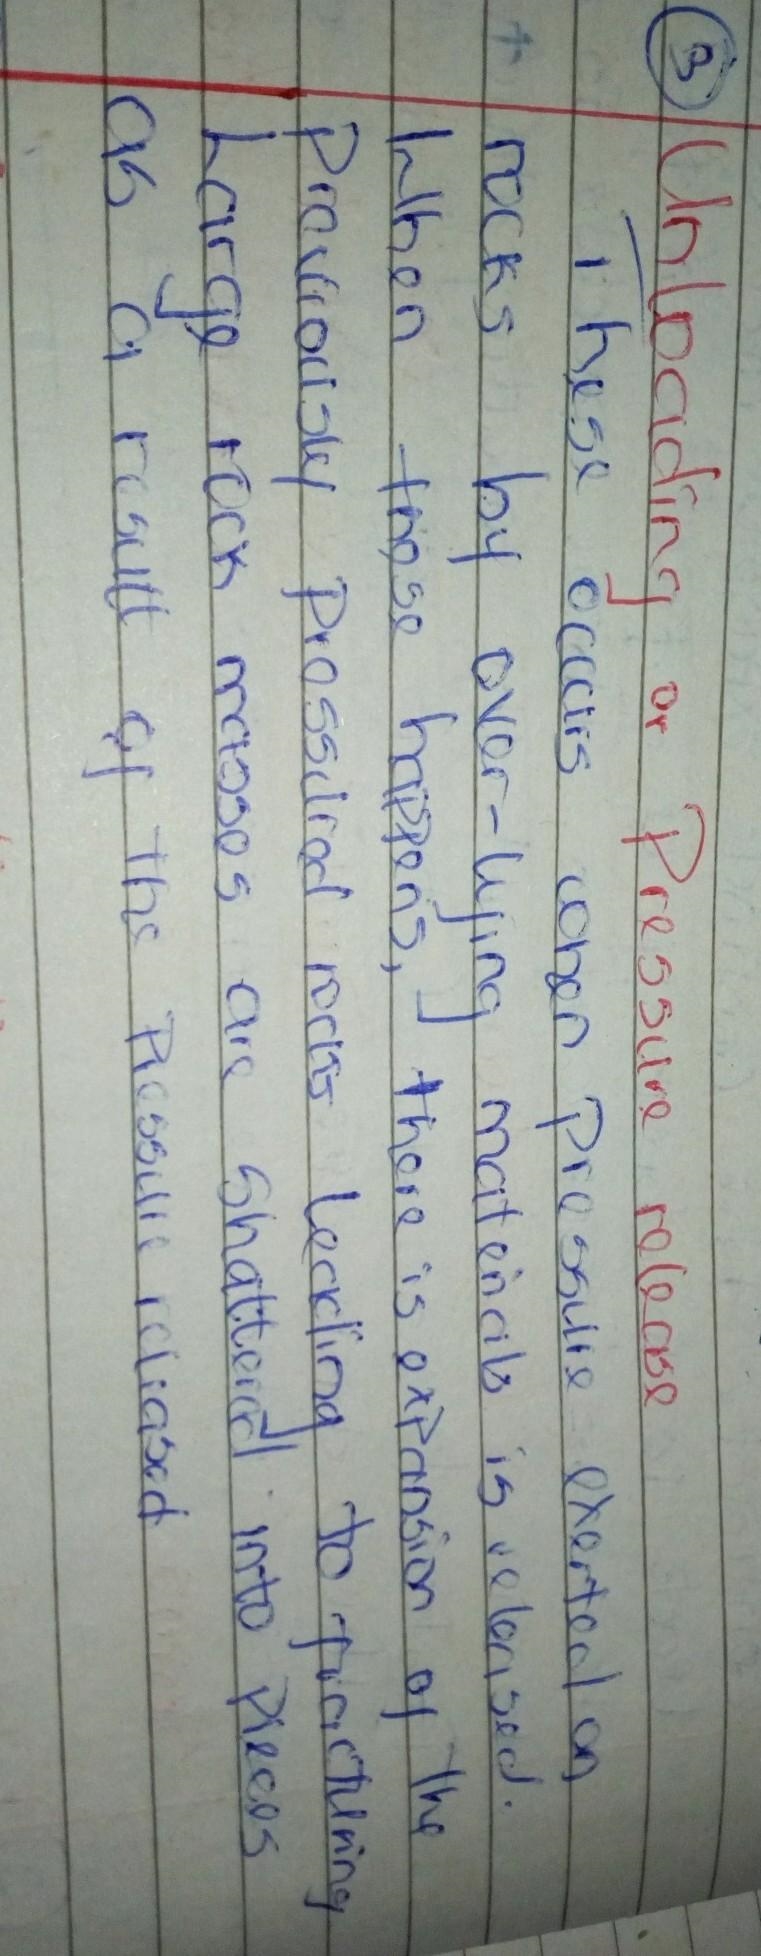 3 Unloading or Pressure release
These occurs when pressure exerted on
rocks by over-lying materials is released.
When these happens, there is expansion of the
previously pressured rocks leading to fracturing
Large rock masses are shattered into pieces
as a result of the pressure released